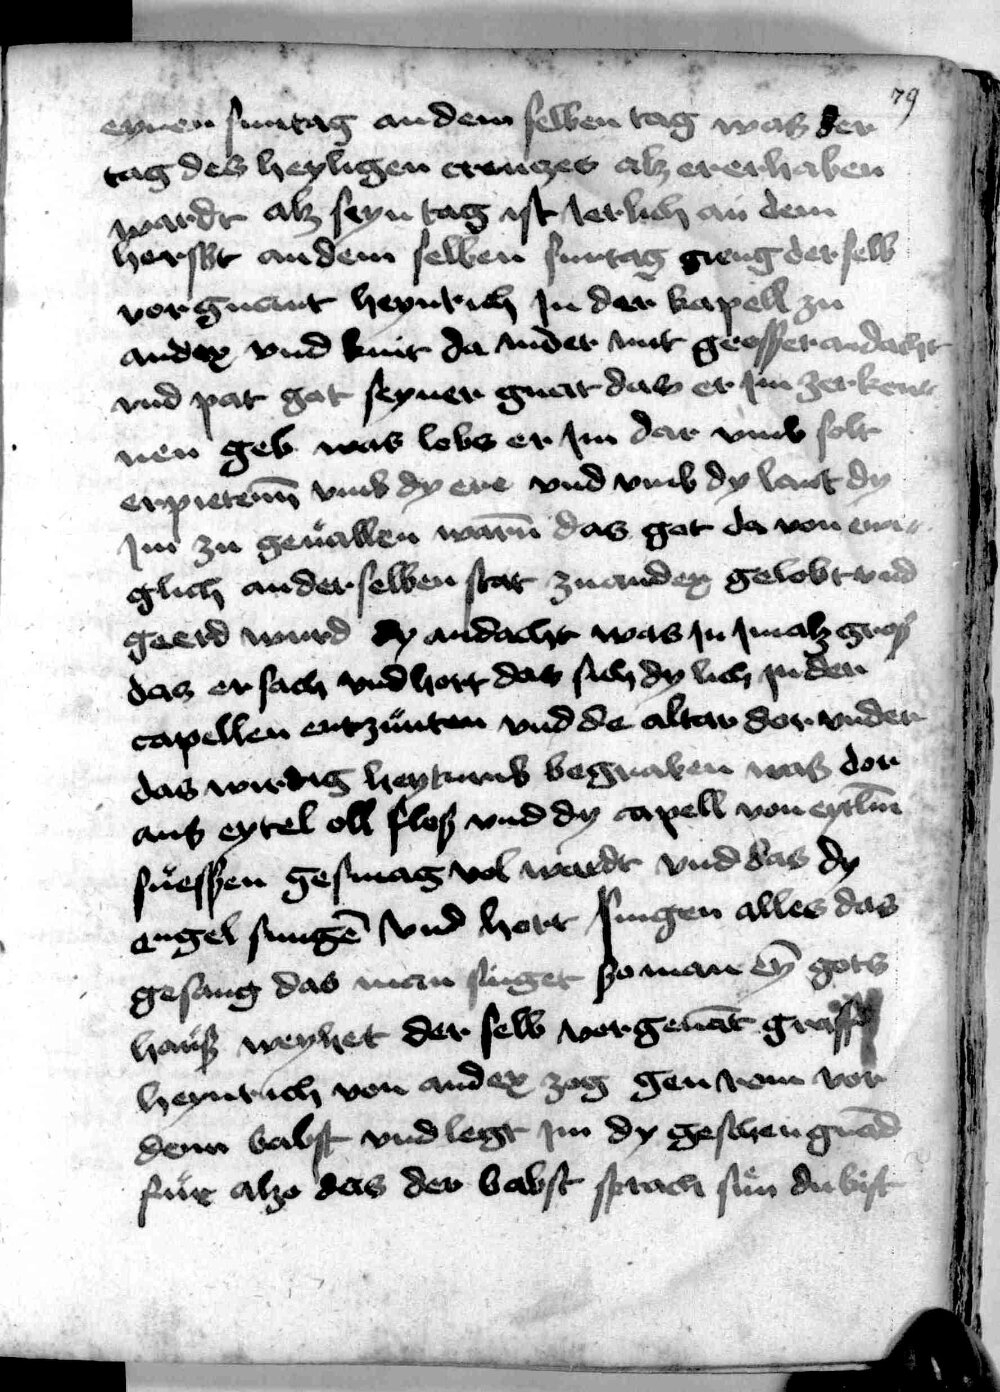 79
eynen suntag an dem selben tag was der
tag des heyligen creuczes alz er erhaben
wardt alz seyn tag ist Jerlich an dem
herbst an dem selben suntag gieng der selb
vorgnant heynrich Jn der kapell zu
andex vnd knit da nider mit grosser andacht
vnd pat got seyner gnad das er Jm zerken
nen geb was lobs er Jm dar vmb solt
erpieten vmb dy ere vnd vmb dy laut dy
Jm zu geuallen warn̄ das got da von ewi
glich an der selben stat zu andex gelobt vnd
geerd wurd dy andacht was Jn Jm alz groß
das er sach vnd hort das sich dy lich Jn der
capellen entzünten vnd de altar dor vnder
das wirdig heyltumb begraben was dor
auß eytel oll floß vnd dy capell von eytlm̄
süessen gesmag vol wardt vnd das dy
engel sungē vnd hort singen alles das
gesang das man singet so man eȳ gots
hauß weyhet der selb vorgenāt graff
heynrich von andex zog gen rom vor
dem babst vnd legt Jm dy geschen gnad
für alzo das der babst sprach sün du bist